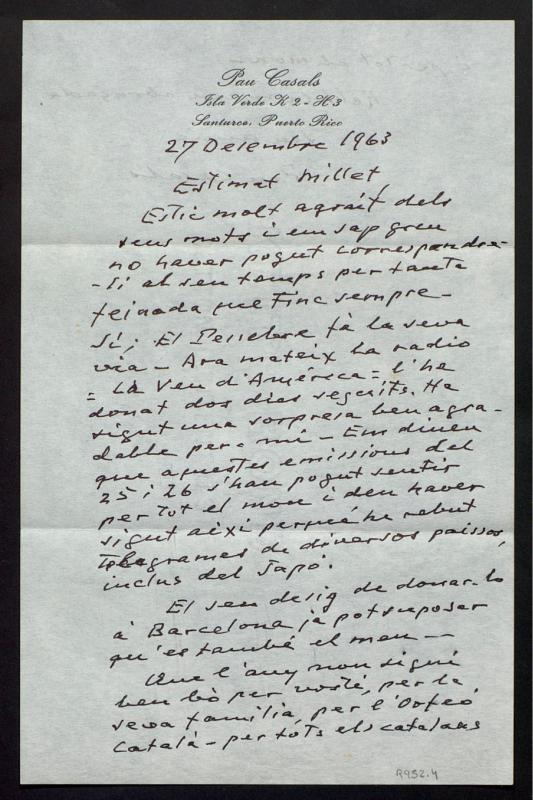 Pau Casals
Isla Verde K 2 - H 3
Santurce, Puerto Rico
27 Desembre 1963
Estimat Millet
Estic molt agraít dels
seus mots i em sap greu
no haver pogut correspondre-
-li al seu temps per tanta
feinada que tinc sempre -
Sí; El Pessebre fà la seva
via - Ara mateix la radio
= La Veu d'América = l'he
donat dos dias seguits. Ha
sigut una sorpresa ben agra-
dable per a mi - Em diuen
que aquestes emissions del
25 i 26 s'han pogut sentir
per tot el mon i deu haver
sigut aixi perqué he rebut
telegrames de diversos paissos,
inclus del Japó.
El seu desig de donar-lo
à Barcelona ja pot suposar
qu'es també el meu -
Que l'any nou sigui
ben bò per vosté, per la
seva familia, per l'Orfeó
Català - per tots els catalans
R952.4